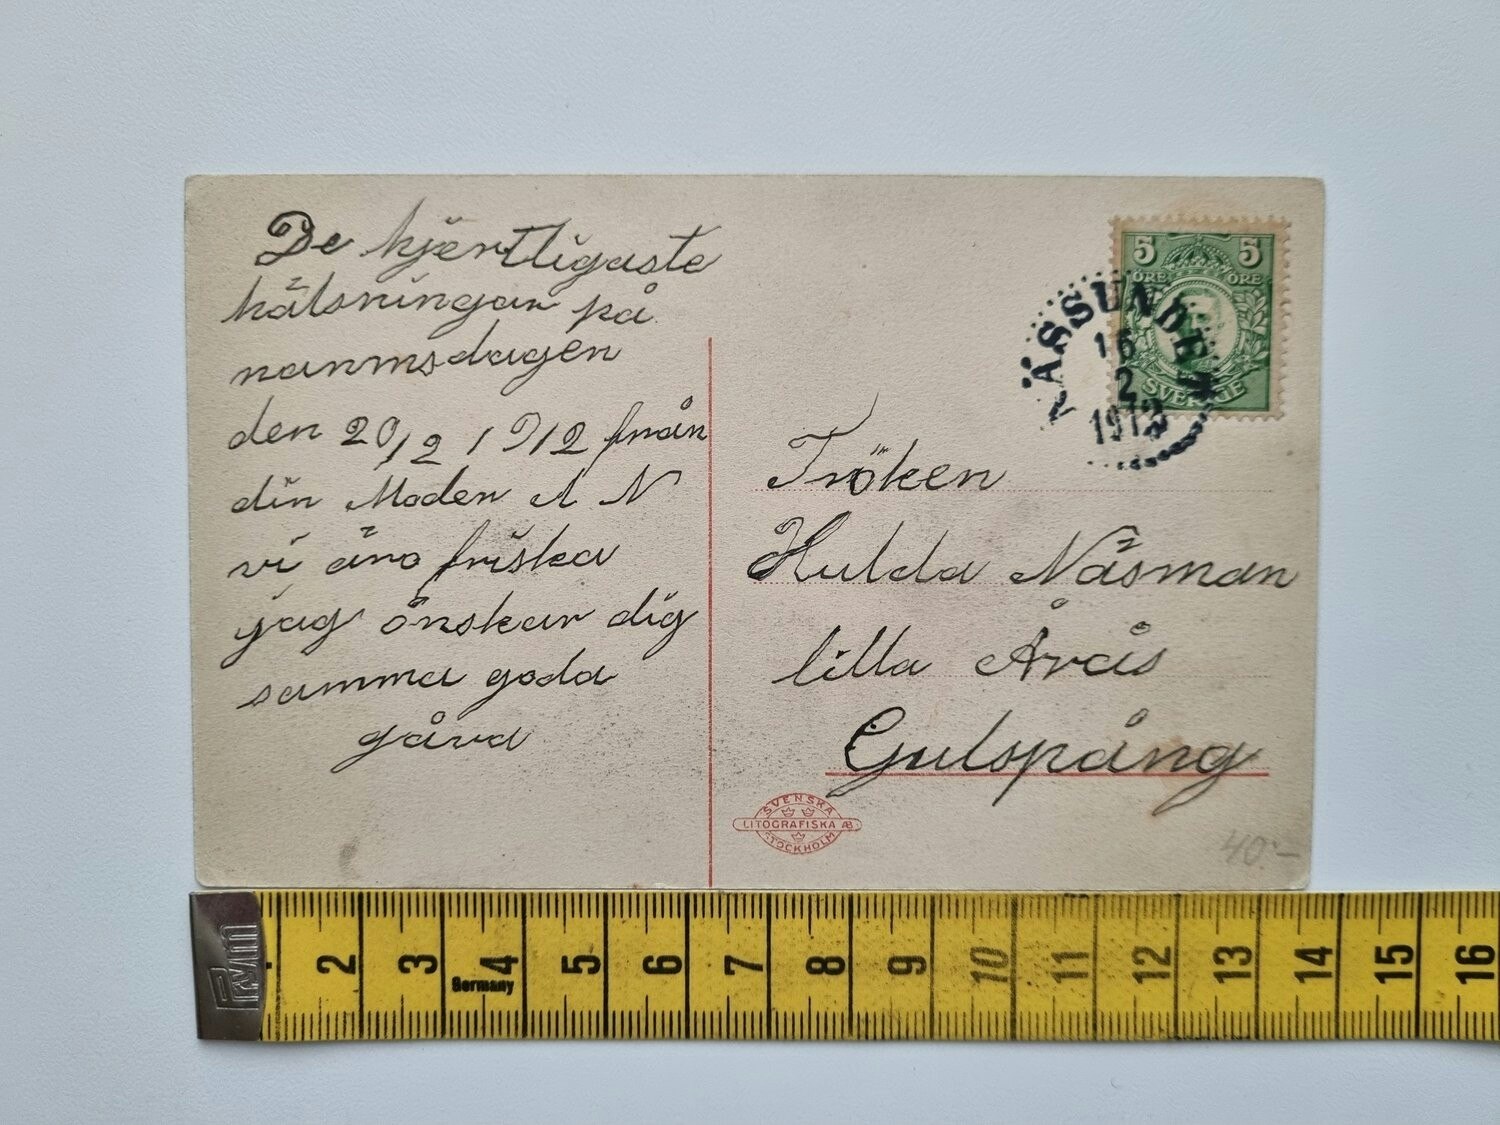 De hjertligaste
hälsningar på
nanmsdagen
den 20/2 1912 från
din Moder A N
vi äro friska
jag önskar dig
samma goda
gåva
5 5
ÖRE ÖRE
SVERIGE
NÄSSUNDET
16
2
1912
Fröken
Hulda Näsman
lilla Årås
Gulspång
SVENSKA
LITOGRAFISKA AB
STOCKHOLM
40:-
PWM
Germany
2 3 4 5 6 7 8 9 10 11 12 13 14 15 16